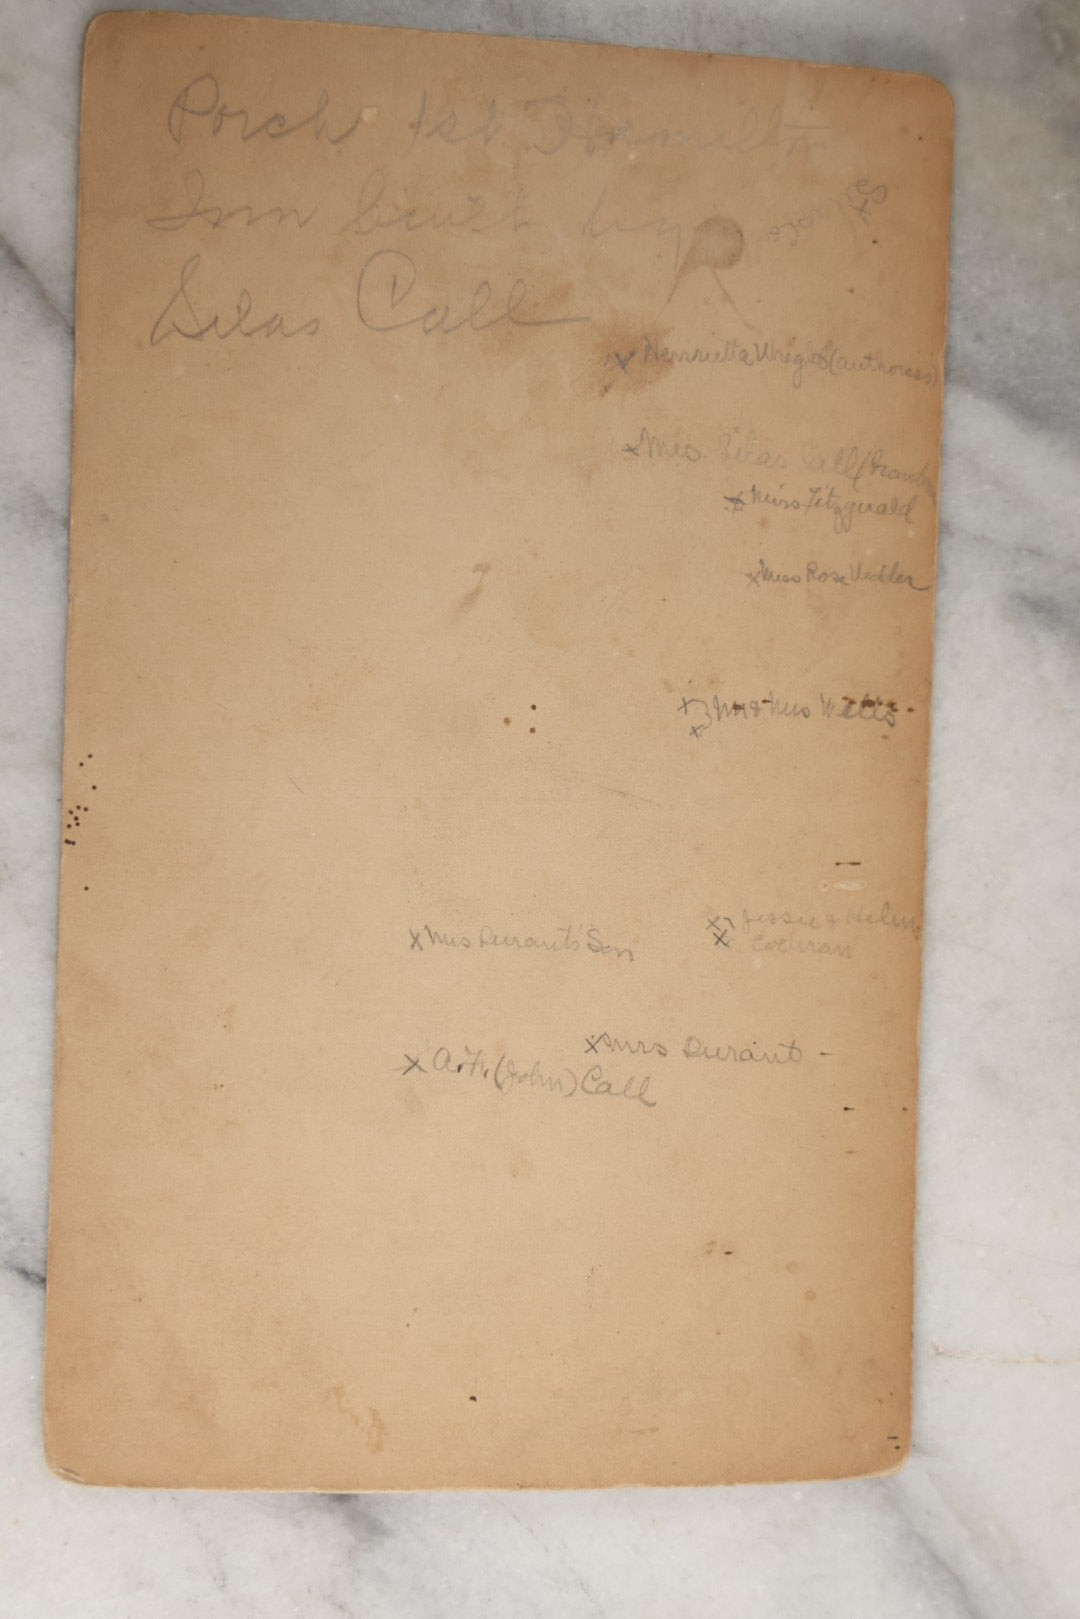 Porch 1st Hamilton
Inn built by
Silas Call
x Henrietta Wright (authoress)
x Mrs. Silas Call (Grandma
x Miss Fitzgerald
x Miss Rose Vedder
x
x } Mr & Mrs Wells -
x Mrs Durants' Son
x
x } Jessie & Helen
Cochran
x Mrs Durant -
x A. H. (John) Call